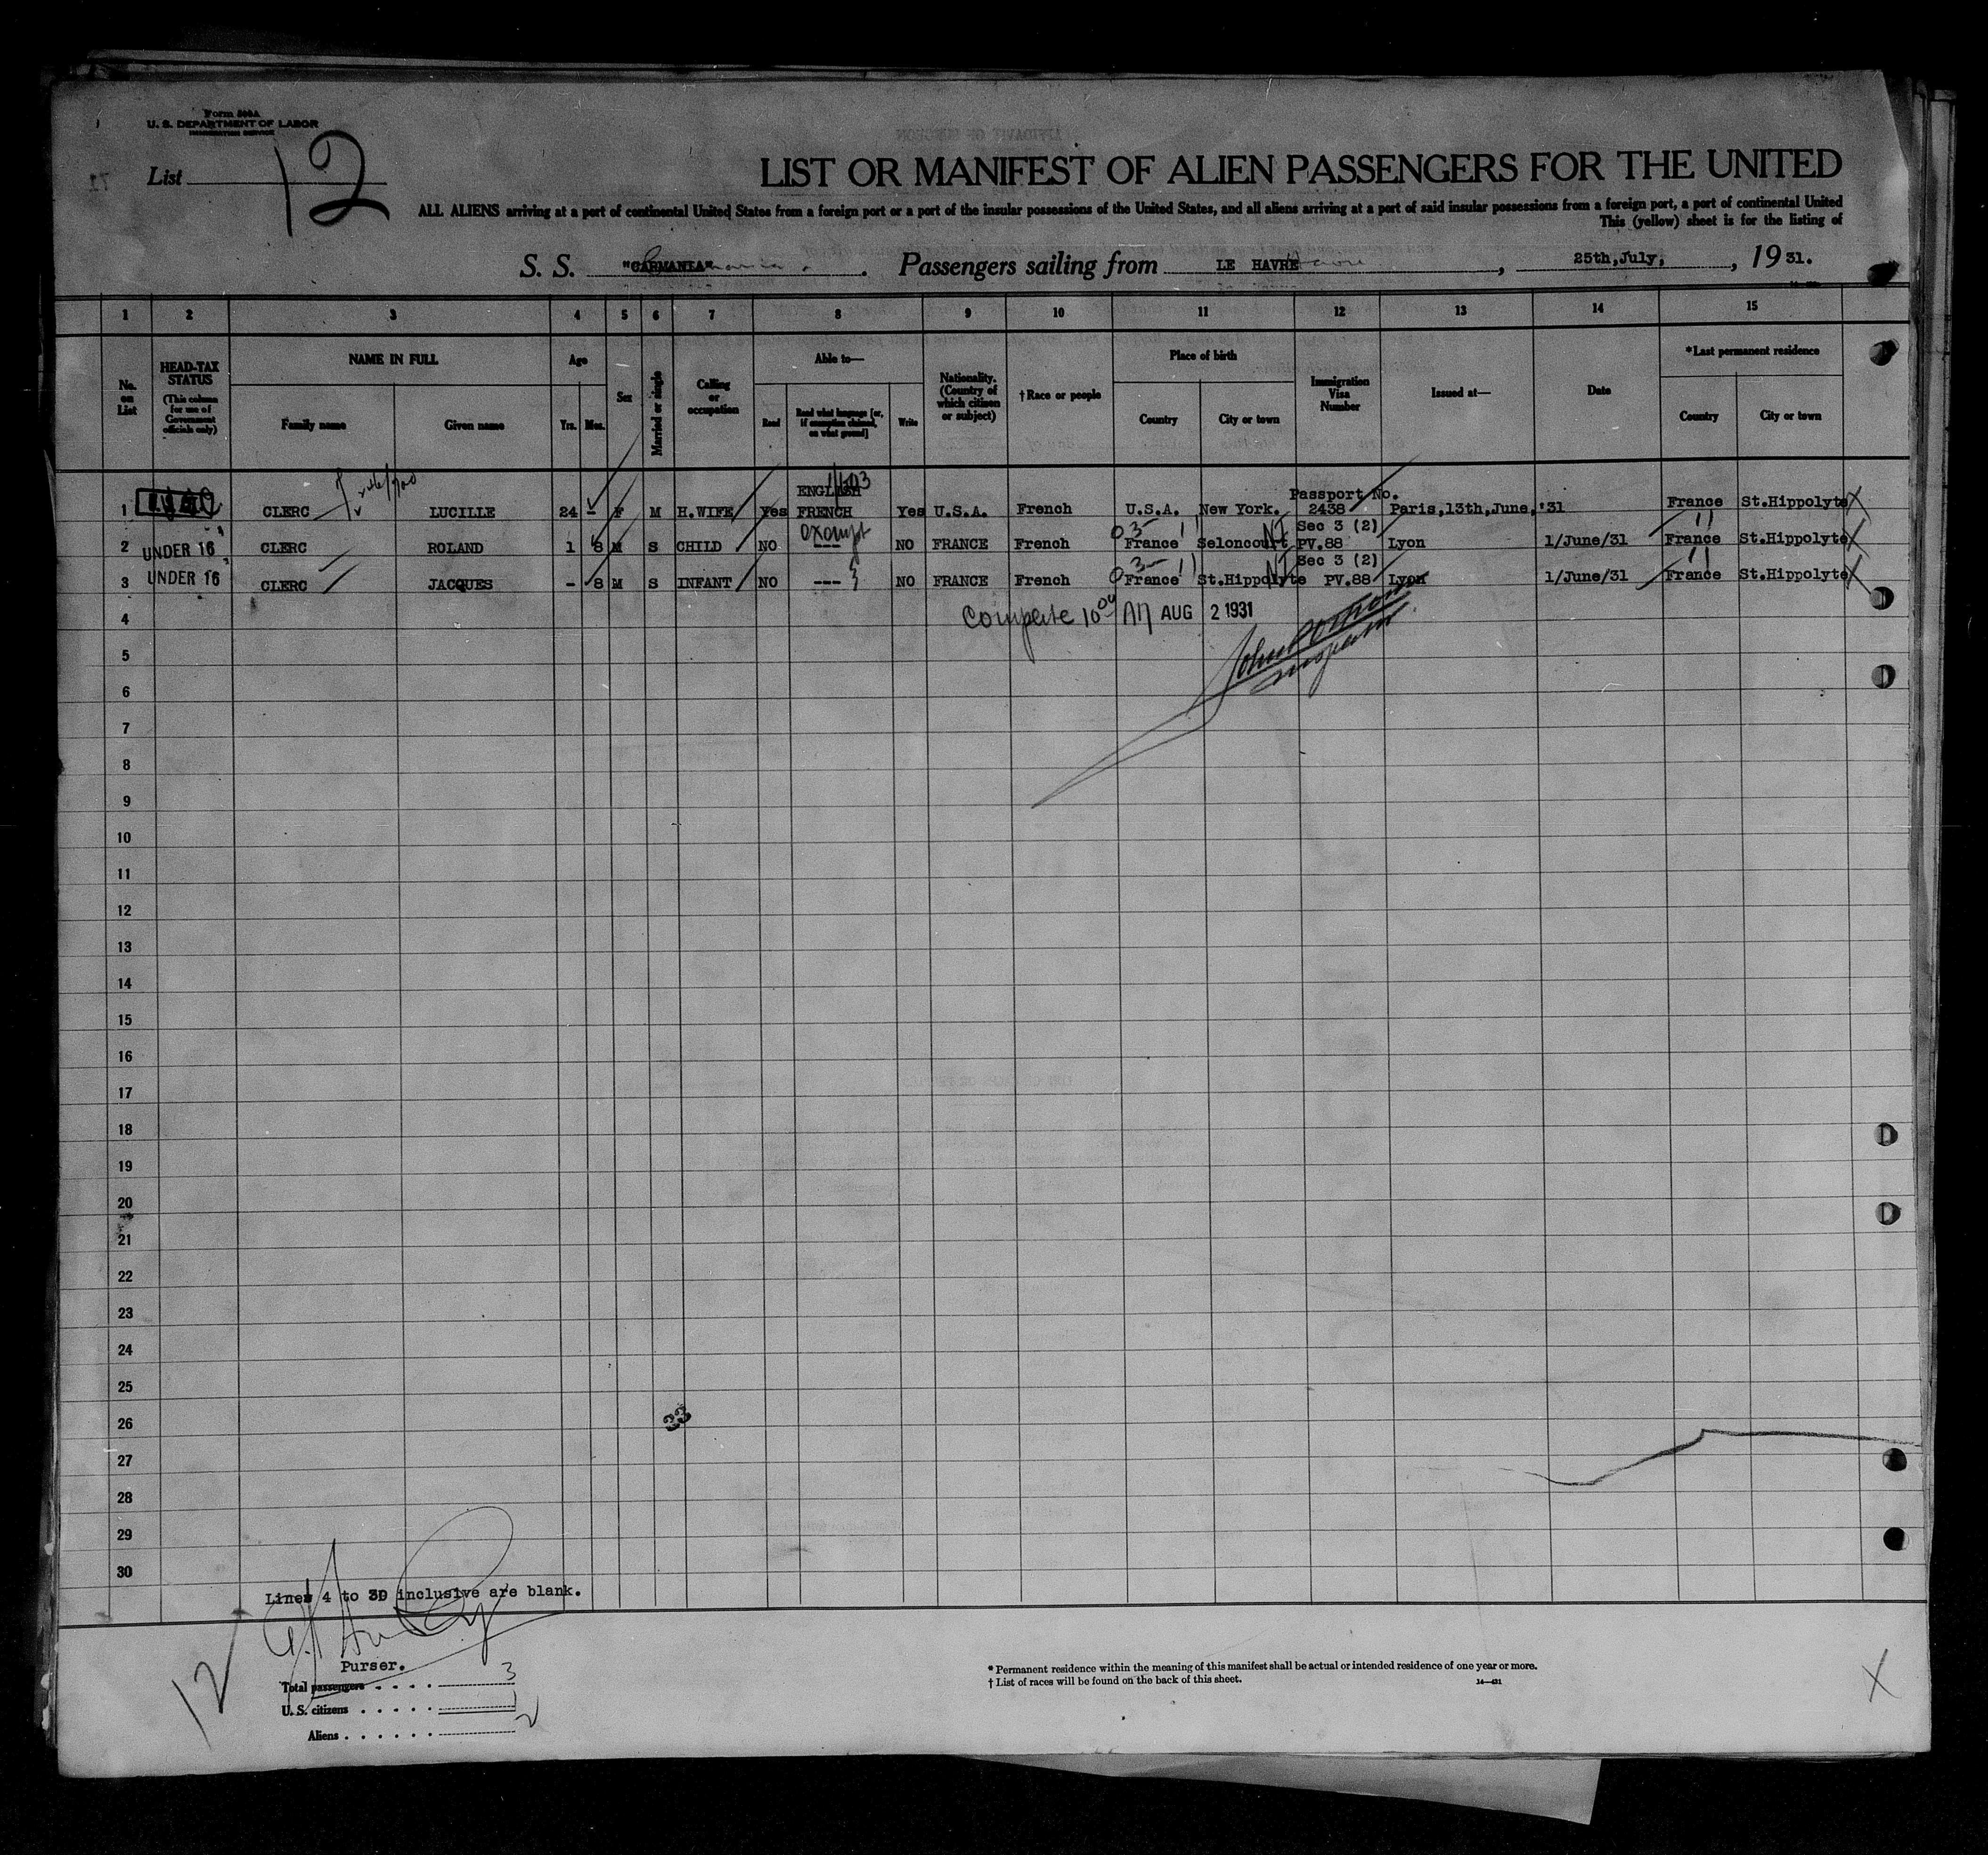 Form 500A
U. S. DEPARTMENT OF LABOR
IMMIGRATION SERVICE
List 12
LIST OR MANIFEST OF ALIEN PASSENGERS FOR THE UNITED
ALL ALIENS arriving at a port of continental United States from a foreign port or a port of the insular possessions of the United States, and all aliens arriving at a port of said insular possessions from a foreign port, a port of continental United
This (yellow) sheet is for the listing of
S. S. "CARMANIA". Passengers sailing from LE HAVRE, 25th,July, , 19 31.
1 2 3 4 5 6 7 8 9 10 11 12 13 14 15
No. on List
HEAD-TAX STATUS (This column for use of Government officials only)
NAME IN FULL
Family name
Given name
Age
Yrs. Mos.
Sex
Married or single
Calling or occupation
Able to—
Read
Read what language [or, if exemption claimed, on what ground]
Write
Nationality. (Country of which citizen or subject)
†Race or people
Place of birth
Country
City or town
Immigration Visa Number
Issued at—
Date
*Last permanent residence
Country
City or town
1 CLERC LUCILLE 24 - F M H.WIFE Yes ENGLISH FRENCH Yes U.S.A. French U.S.A. New York. Passport No. 2438 Paris,13th,June,'31 France St.Hippolyte X
2 UNDER 16 CLERC ROLAND 1 8 M S CHILD NO exempt --- NO FRANCE French France Seloncourt Sec 3 (2) PV.88 Lyon 1/June/31 France St.Hippolyte X
3 UNDER 16 CLERC JACQUES - 8 M S INFANT NO --- NO FRANCE French France St.Hippolyte Sec 3 (2) PV.88 Lyon 1/June/31 France St.Hippolyte X
4 AUG 2 1931
5
6
7
8
9
10
11
12
13
14
15
16
17
18
19
20
21
22
23
24
25
26 33
27
28
29
30
Lines 4 to 30 inclusive are blank.
Purser.
12
Total passengers . . . . 3
U. S. citizens . . . . . 1
Aliens . . . . . . 2
* Permanent residence within the meaning of this manifest shall be actual or intended residence of one year or more.
† List of races will be found on the back of this sheet.
14—431
X